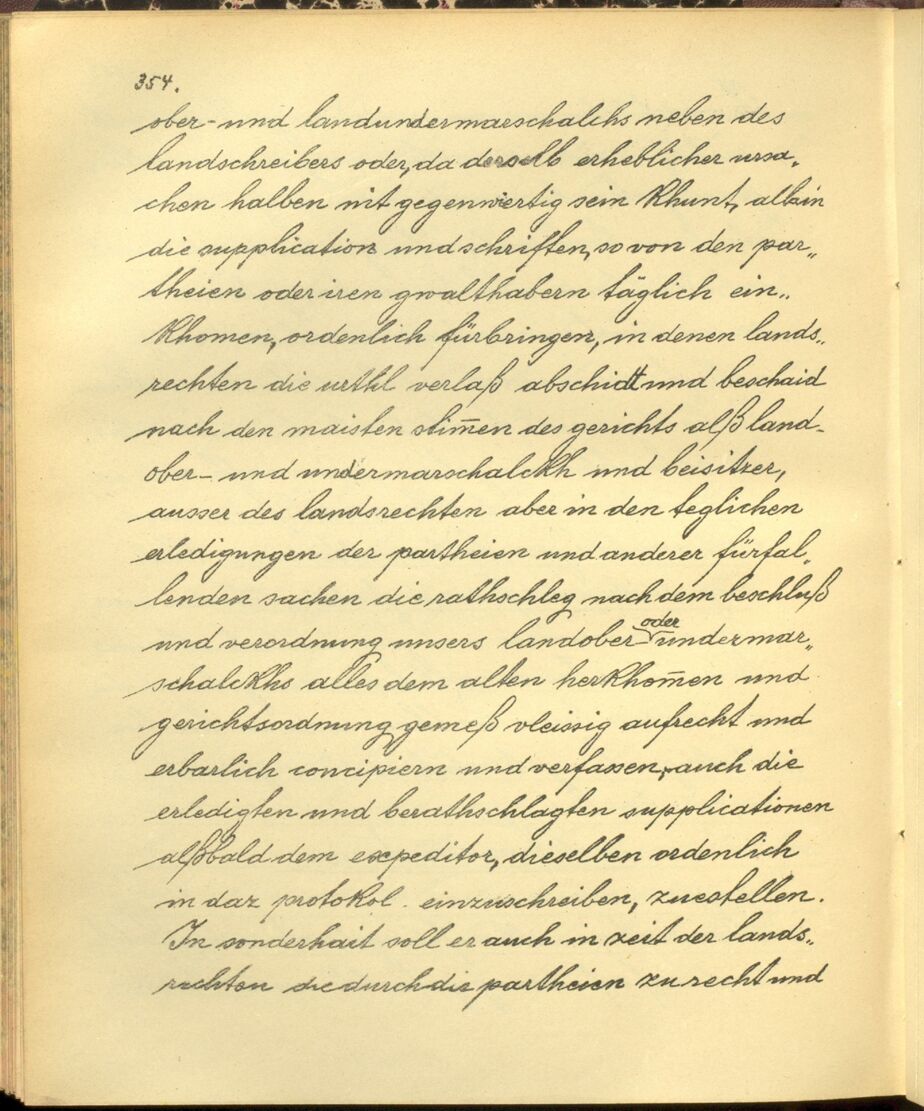 354.
ober- und landundermarschalchs neben des
landschreibers oder, da derselb erheblicher ursa„
chen halben nit gegenwiertig sein khunt, allain
die supplication und schriften, so von den par„
theien oder iren gwalthabern täglich ein„
khomen, ordenlich fürbringen, in denen lands„
rechten die urthl verlaß abschidt und beschaid
nach den maisten stim̅en des gerichts alß land-
ober- und undermarschalckh und beisitzer,
ausser des landsrechten aber in den teglichen
erledigungen der partheien und anderer fürfal„
lenden sachen die rathschleg nach dem beschluß
und verordnung unsers landober- oder undermar„
schalckhs alles dem alten herkhom̅en und
gerichtsordnung gemeß vleissig aufrecht und
erbarlich concipiern und verfassen, auch die
erledigten und berathschlagten supplicationen
alßbald dem expeditor, dieselben ordenlich
in daz protokol einzuschreiben, zuestellen.
In sonderhait soll er auch in zeit der lands„
rechten die durch die partheien zu recht und